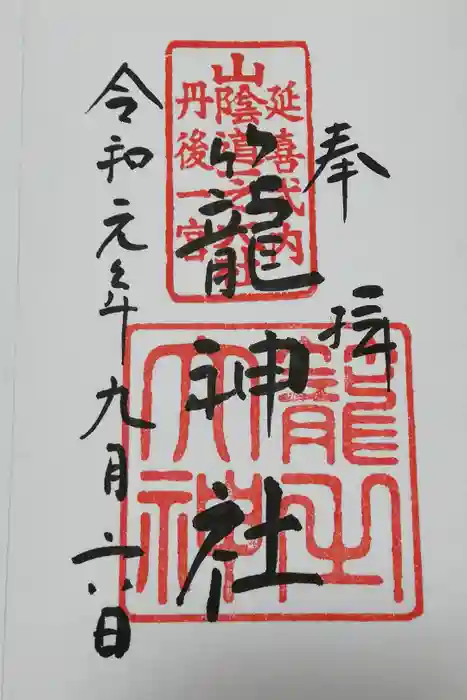 奉拝
延喜式内
山陰道之大社
丹後一宮
籠神社
籠之
大神
令和元年九月六日